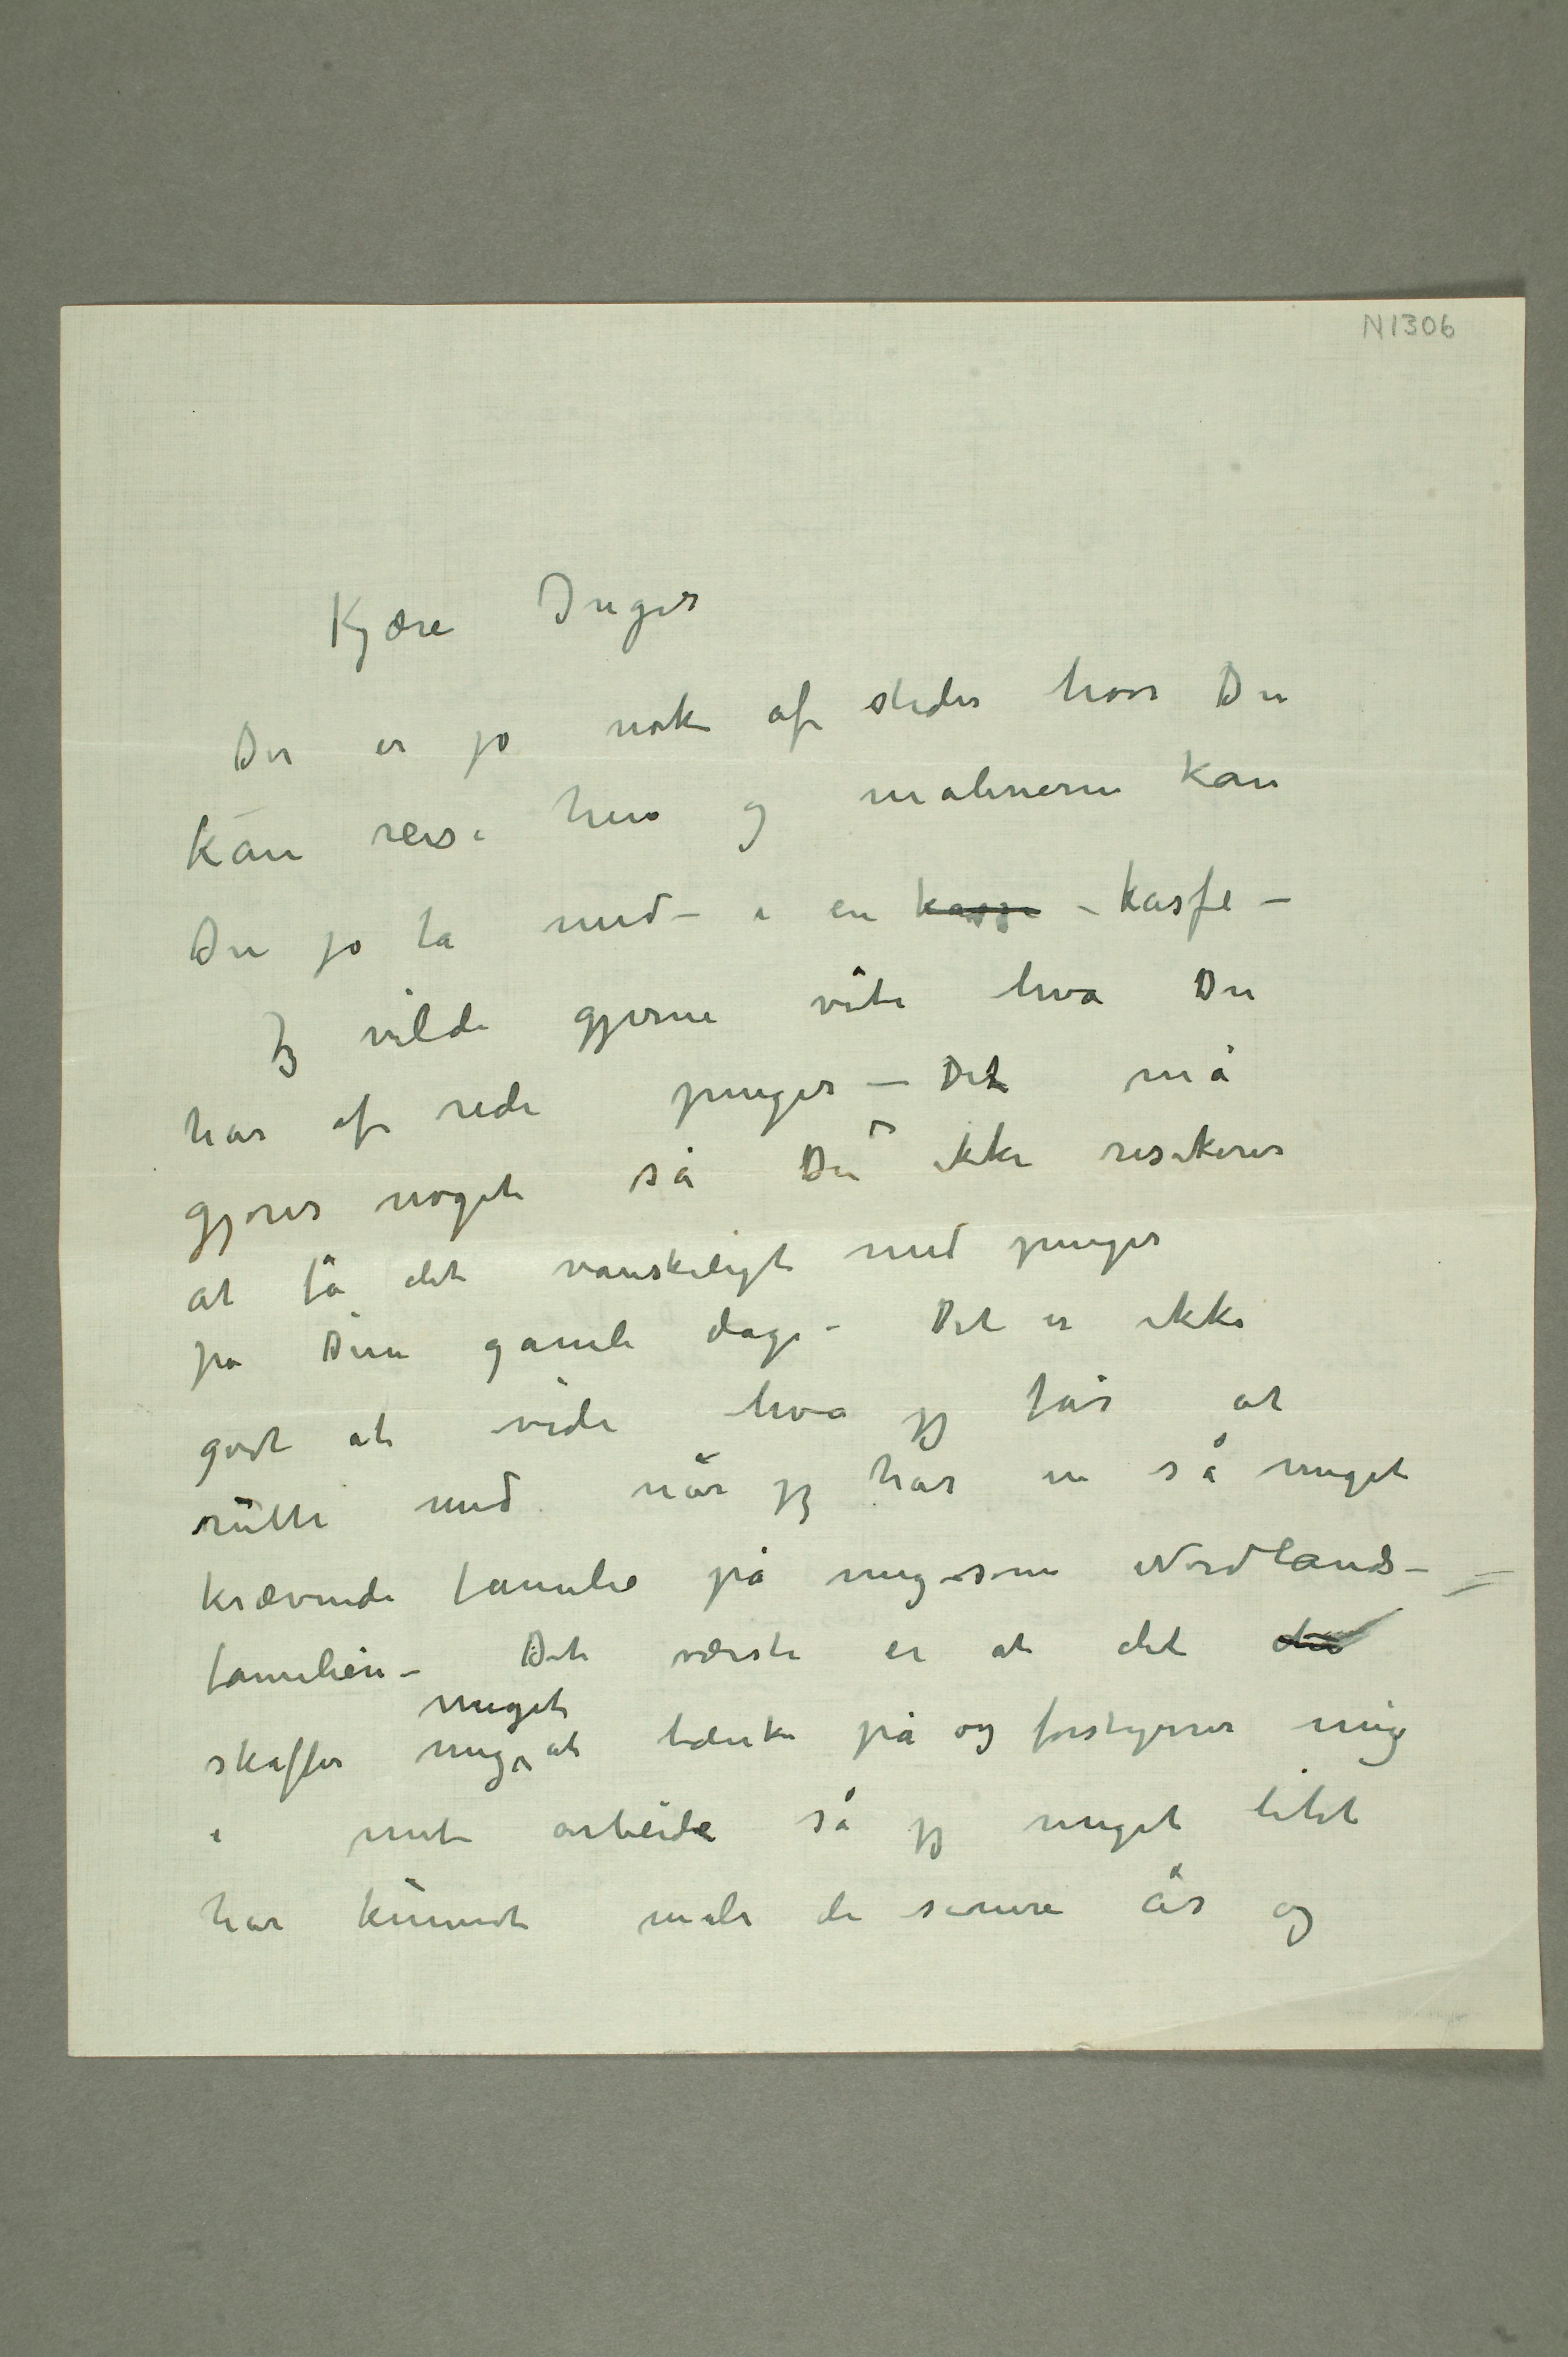 N1306
Kjære Inger
Der er jo nok af steder hvor Du
kan reise hen og malerierne kan
Du jo ta med – i en kasse – kasse –
Jeg vilde gjerne vite hva Du
har af rede penger – Det må
gjøres noget så Du ikke resikerer
at få det vanskeligt med penger
på Dine gamle dage – Det er ikke
godt at vide hva jeg får at
rutte med når jeg har en så meget
krævende familie på mig som Nordlands-
familien – Det værste er at det
meget
skaffer mig at tænke på og forstyrrer mig
i mit arbeide så jeg meget litet
har kunnet male de senere år og